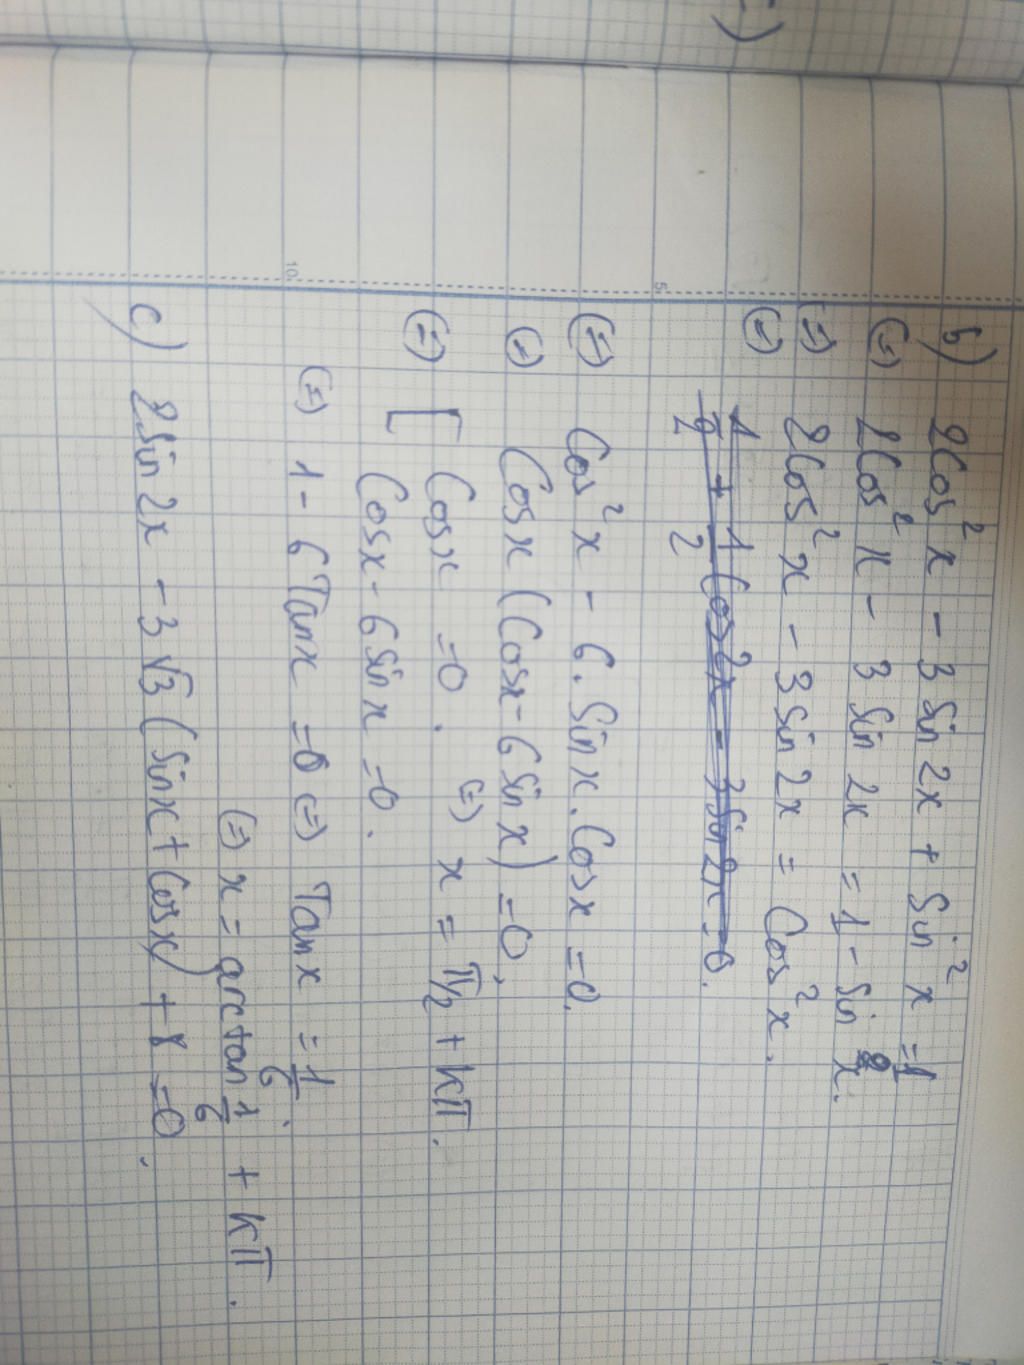 b) 2Cos²x - 3Sin2x + Sin²x = 1
(=) 2Cos²x - 3Sin2x = 1 - Sin²x.
(=) 2Cos²x - 3Sin2x = Cos²x.
(=) 1/2 + 1/2 Cos2x - 3Sin2x = 0.
(=) Cos²x - 6.Sinx.Cosx = 0.
(=) Cosx (Cosx - 6Sinx) = 0.
(=) [ Cosx = 0. (=) x = π/2 + kπ.
Cosx - 6Sinx = 0.
(=) 1 - 6Tanx = 0 (=) Tanx = 1/6.
(=) x = arctan 1/6 + kπ.
c) 2Sin2x - 3√3 (Sinx + Cosx) + 8 = 0.
5
10